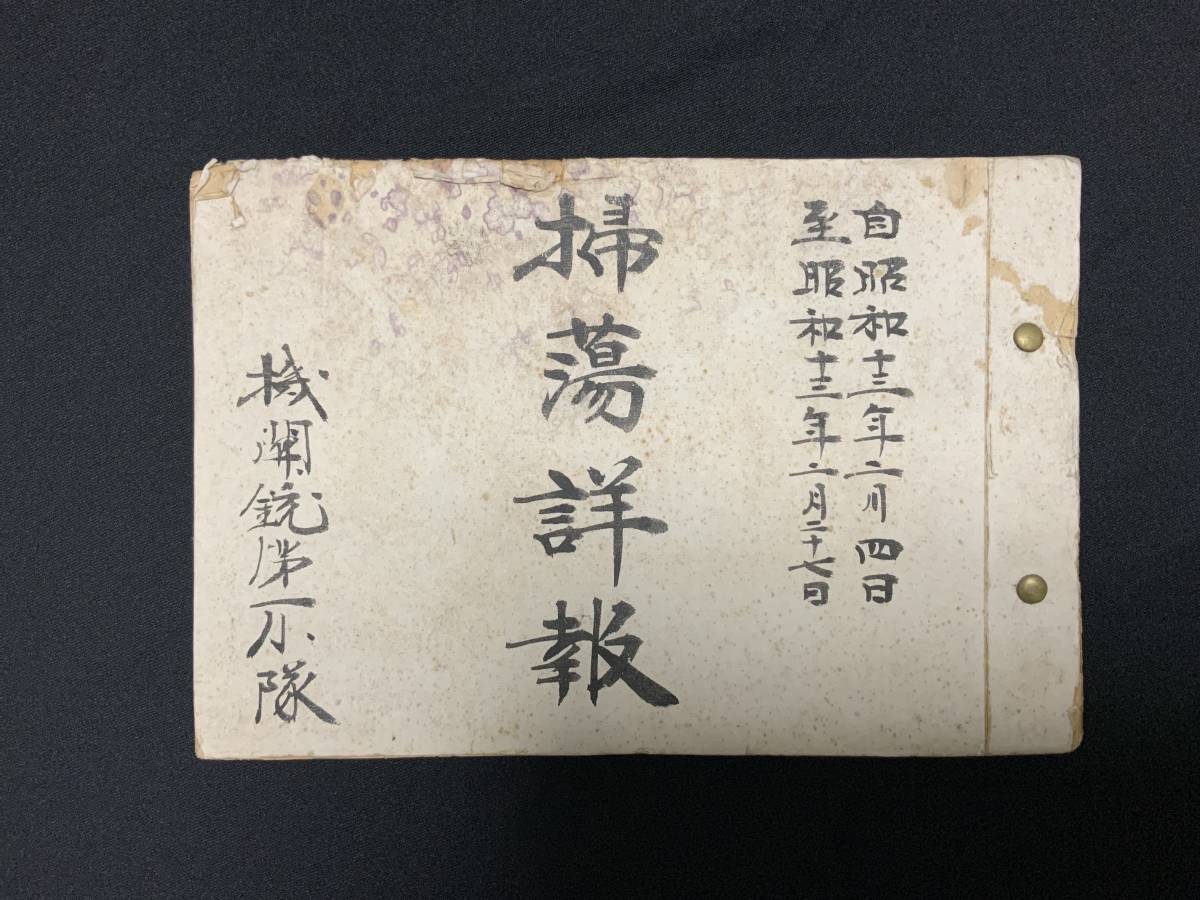 自昭和十三年二月四日
至昭和十三年二月二十七日
掃蕩詳報
機関銃第一小隊